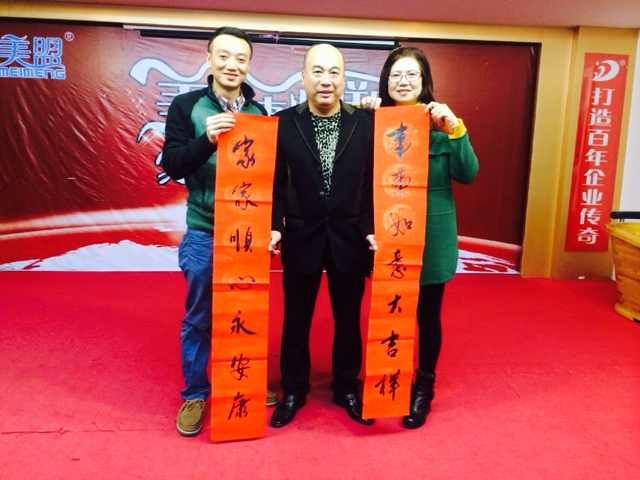 美盟®
MEIMENG
家家顺心永安康
事事如意大吉祥
打造百年企业传奇